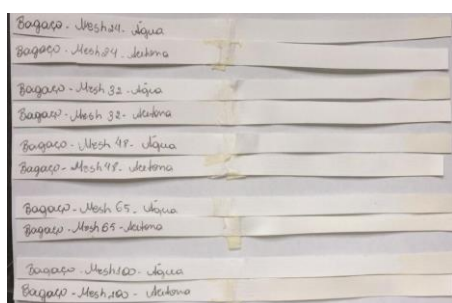 Bagaço - Mesh 24 - Água
Bagaço - Mesh 24 - Acetona
Bagaço - Mesh 32 - Água
Bagaço - Mesh 32 - Acetona
Bagaço - Mesh 48 - Água
Bagaço - Mesh 48 - Acetona
Bagaço - Mesh 65 - Água
Bagaço - Mesh 65 - Acetona
Bagaço - Mesh 100 - Água
Bagaço - Mesh 100 - Acetona